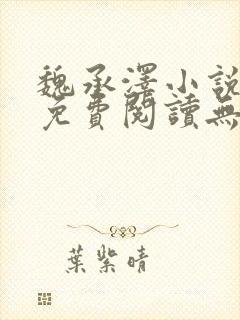 魏承澤小說
免費閱讀無
葉紫晴